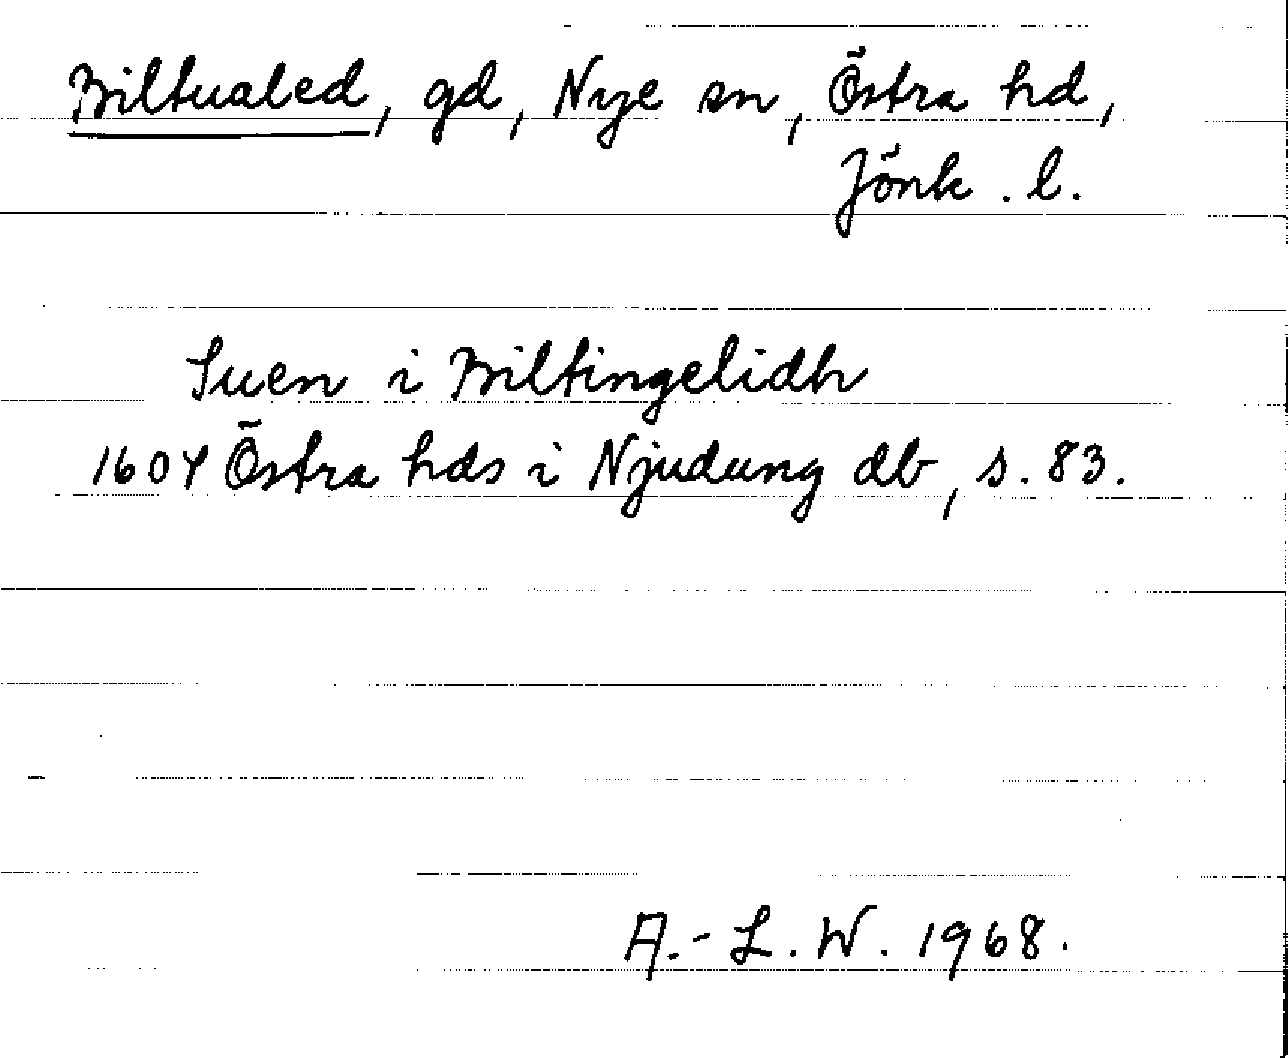 Biltualed, gd, Nye sn, Östra hd,
Jönk. l.
Suen i Biltingelidh
1604 Östra hds i Njudung db, s. 83.
A.-L. W. 1968.